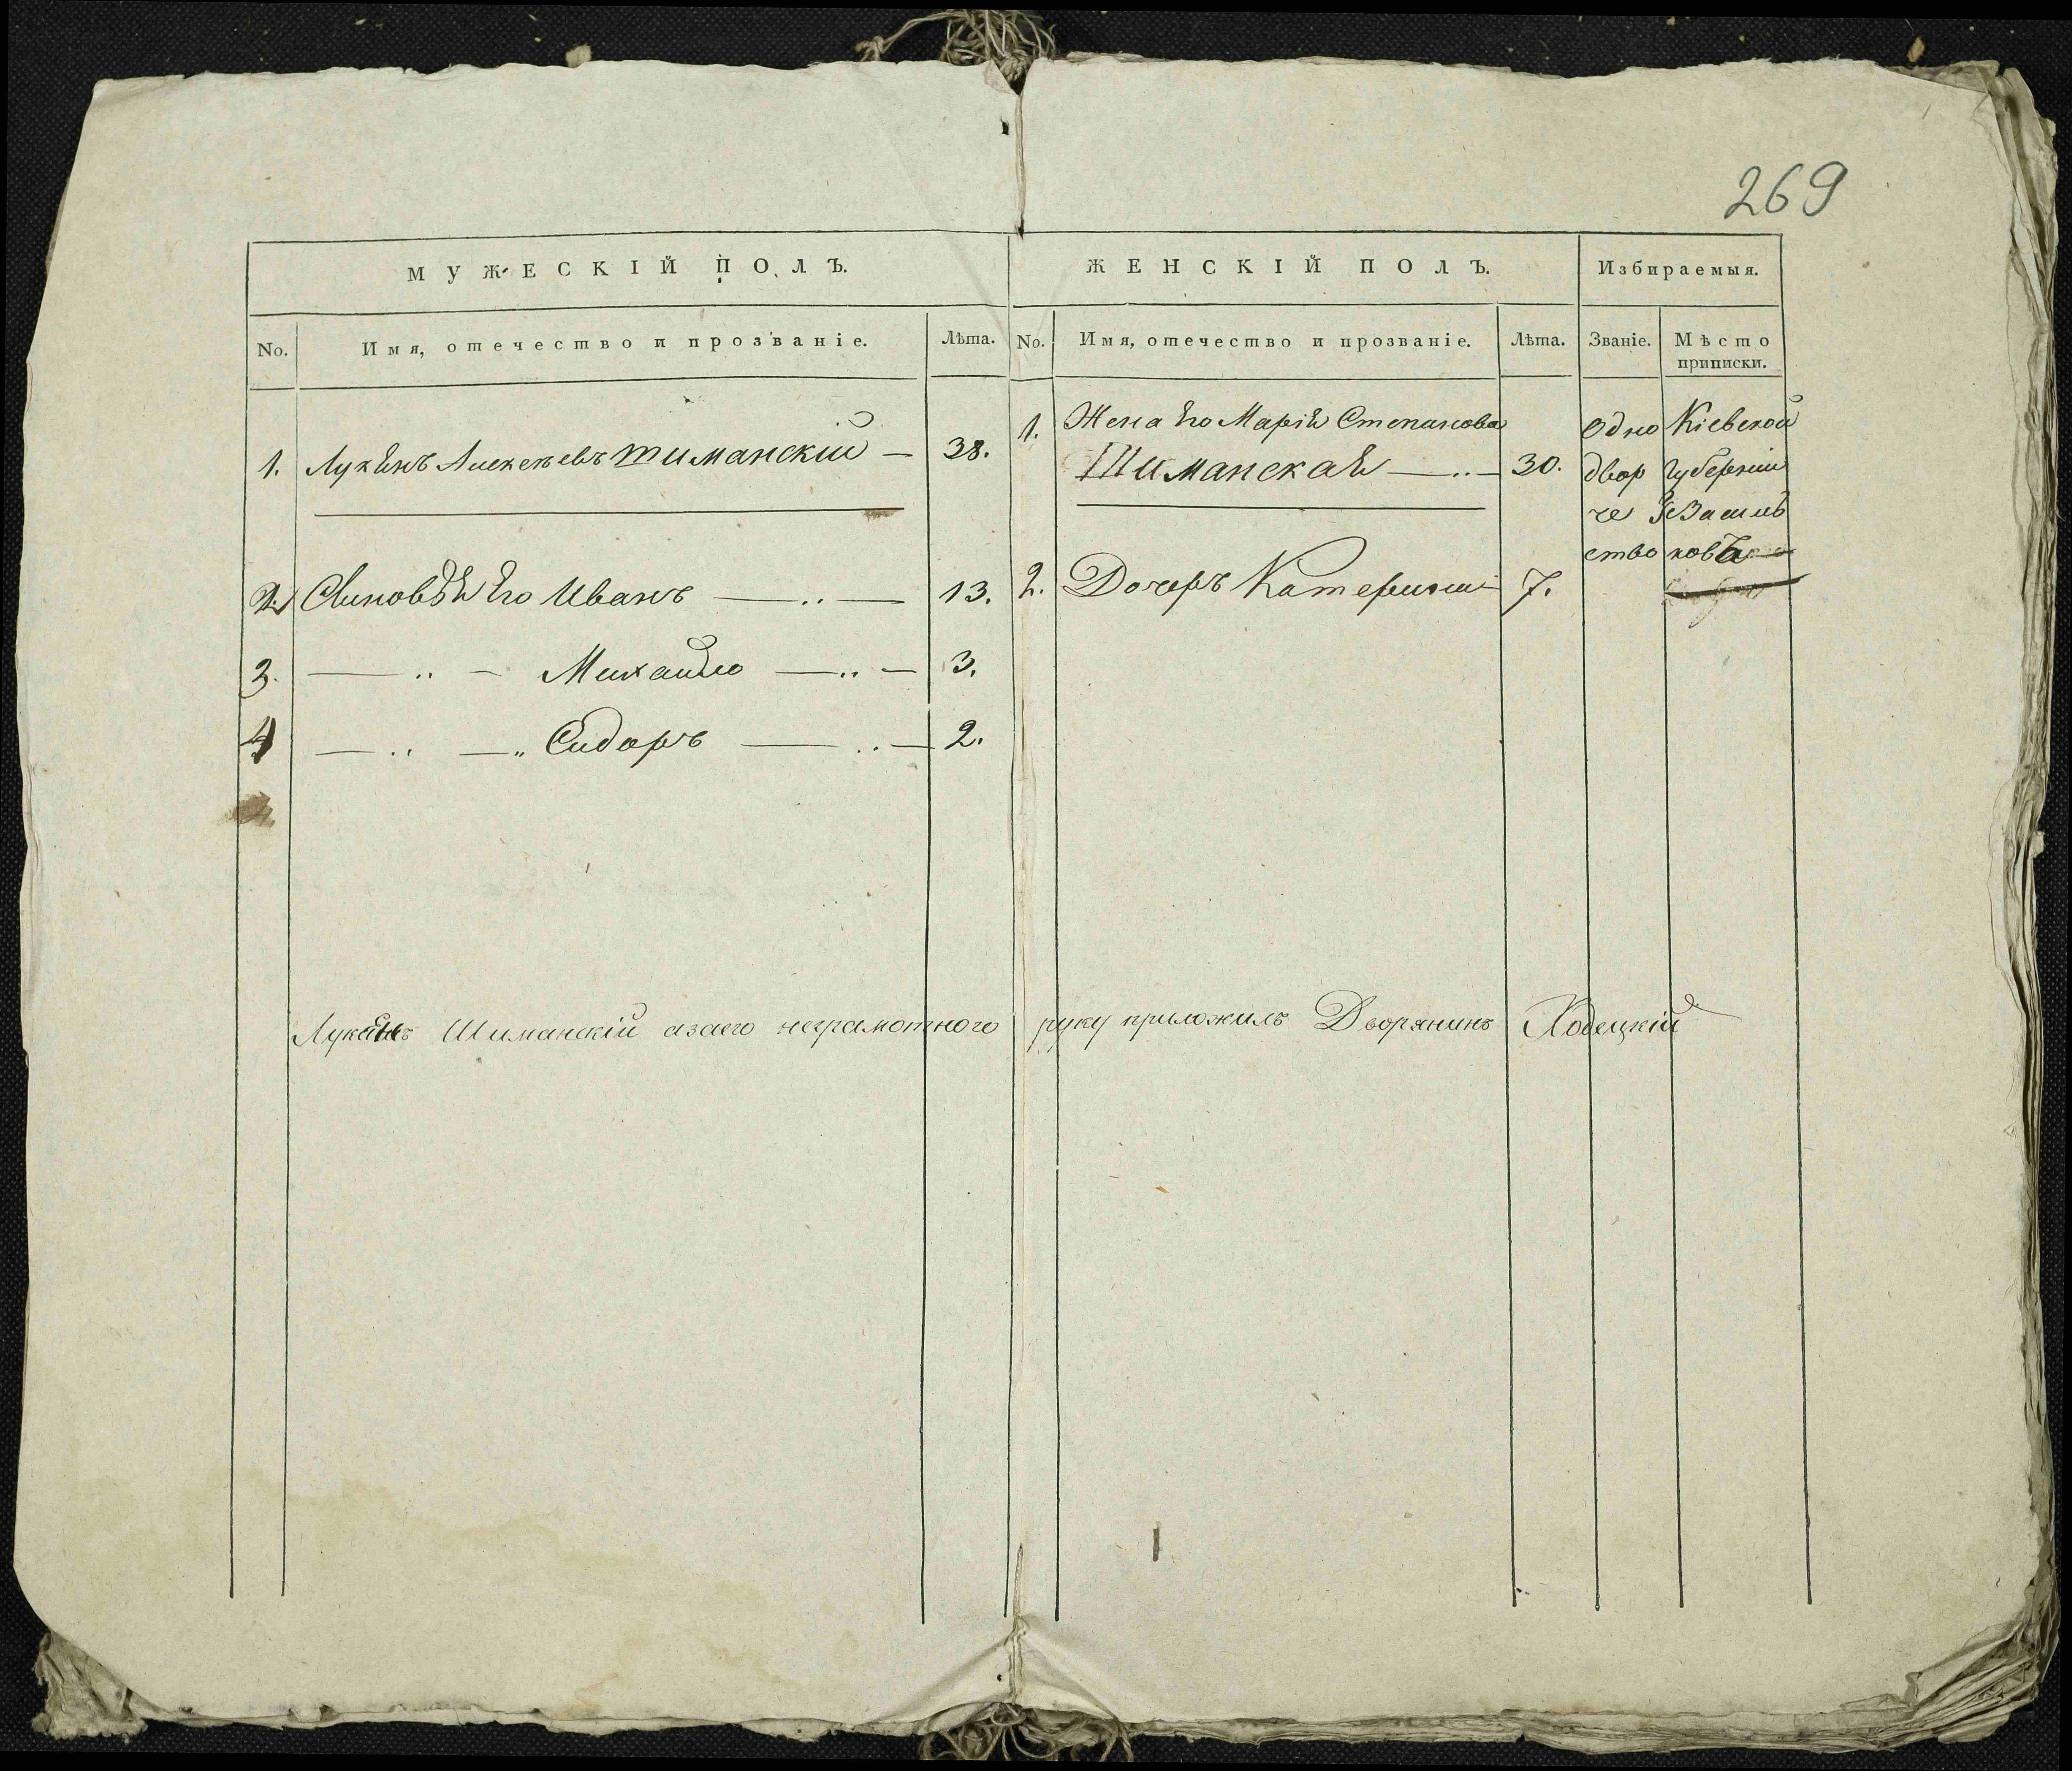 269
МУЖЕСКІЙ ПОЛЪ.
ЖЕНСКІЙ ПОЛЪ.
Избираемыя.
No.
Имя, отечество и прозваніе.
Лѣта.
No.
Имя, отечество и прозваніе.
Лѣта.
Званіе.
Мѣсто
приписки.
1. Лукянъ Алексѣевъ Шиманскій — 38.
2. Синовья Его Иванъ — 13.
3. — Михайло — 3.
4 — Сидоръ — 2.
1. Жена Его Марія Степанова
Шиманская — 30.
2. Дочеръ Катерина 7.
Одно
двор
че
ство
Кіевской
губерніи
Василь
ковъ
Лукянъ Шиманскій азаего неграмотного руку приложилъ Дворянинъ Ходецкій